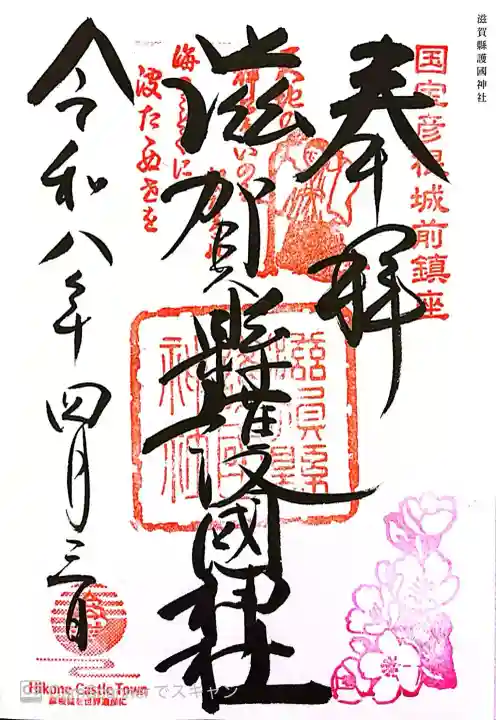 滋賀縣護國神社
国宝彦根城前鎮座
奉拝
滋賀縣護國神社
天地の
海
波たぬせを
令和八年四月三日
Hikone Castle Town
彦根城を世界遺産に
でスキャン